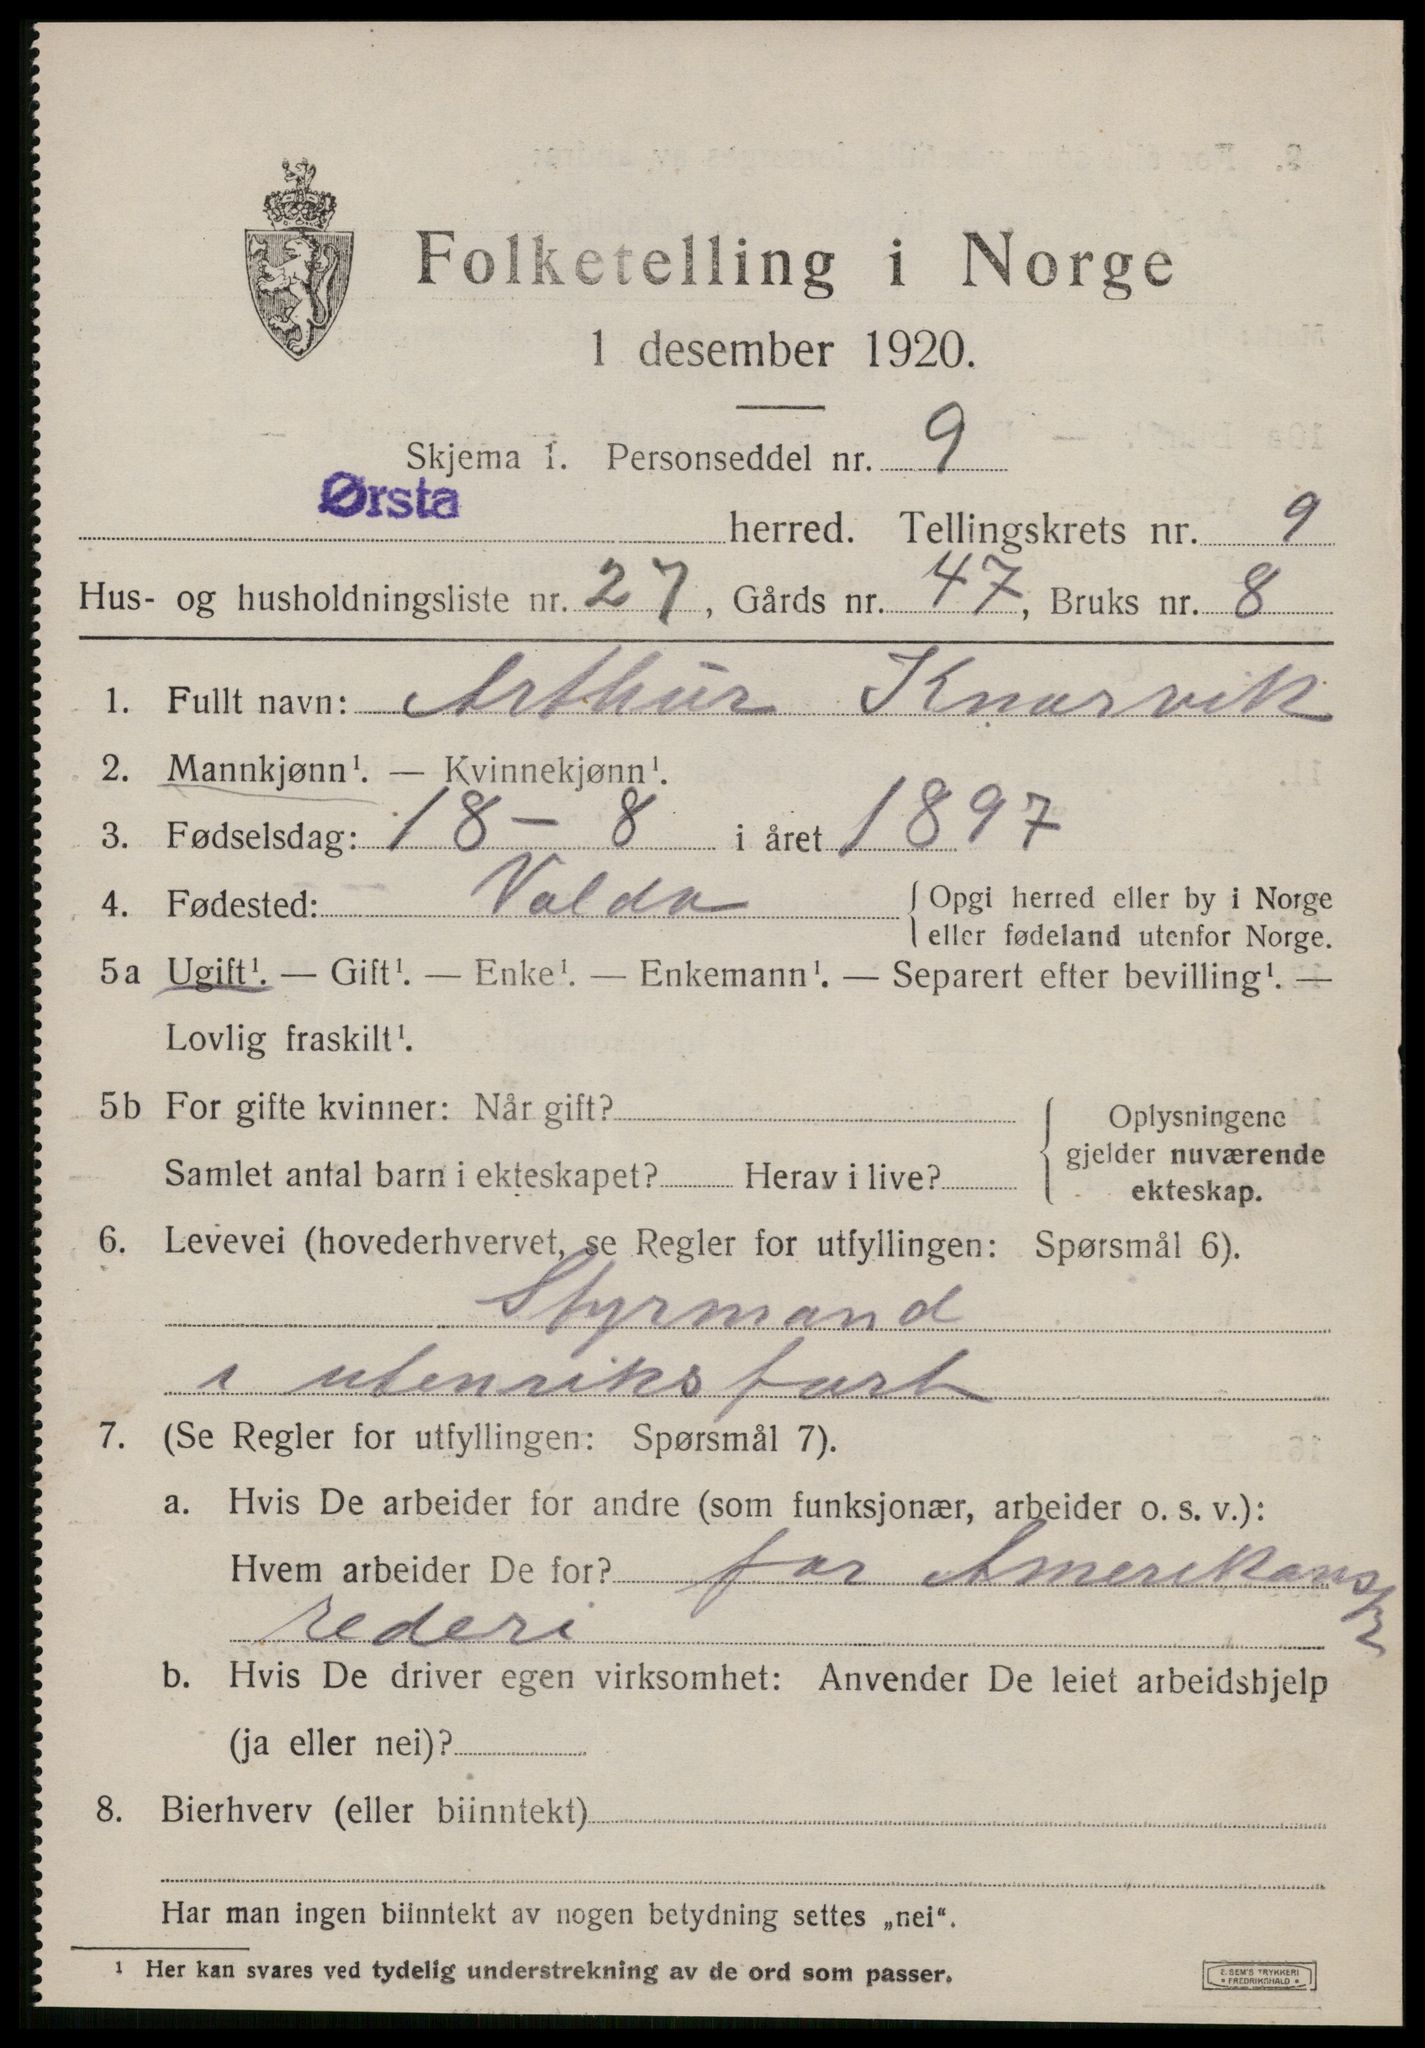 Folketelling i Norge
1 desember 1920.
Skjema 1. Personseddel nr. 9
Ørsta herred. Tellingskrets nr. 9
Hus- og husholdningsliste nr. 27, Gårds nr. 47, Bruks nr. 8
1. Fullt navn: Arthur Knarvik
2. Mannkjønn¹. — Kvinnekjønn¹.
3. Fødselsdag: 18 – 8 i året 1897
4. Fødested: Volda { Opgi herred eller by i Norge
eller fødeland utenfor Norge.
5a Ugift¹. — Gift¹. — Enke¹. — Enkemann¹. — Separert efter bevilling¹. —
Lovlig fraskilt¹.
5b For gifte kvinner: Når gift?
Samlet antal barn i ekteskapet? Herav i live?
{ Oplysningene
gjelder nuværende
ekteskap.
6. Levevei (hovederhvervet, se Regler for utfyllingen: Spørsmål 6).
Styrmand
i utenriksfart
7. (Se Regler for utfyllingen: Spørsmål 7).
a. Hvis De arbeider for andre (som funksjonær, arbeider o. s. v.):
Hvem arbeider De for? for Amerikansk
rederi
b. Hvis De driver egen virksomhet: Anvender De leiet arbeidshjelp
(ja eller nei)?
8. Bierhverv (eller biinntekt)
Har man ingen biinntekt av nogen betydning settes „nei“.
¹ Her kan svares ved tydelig understrekning av de ord som passer.
E. SEM'S TRYKKERI
• FREDRIKSHALD •